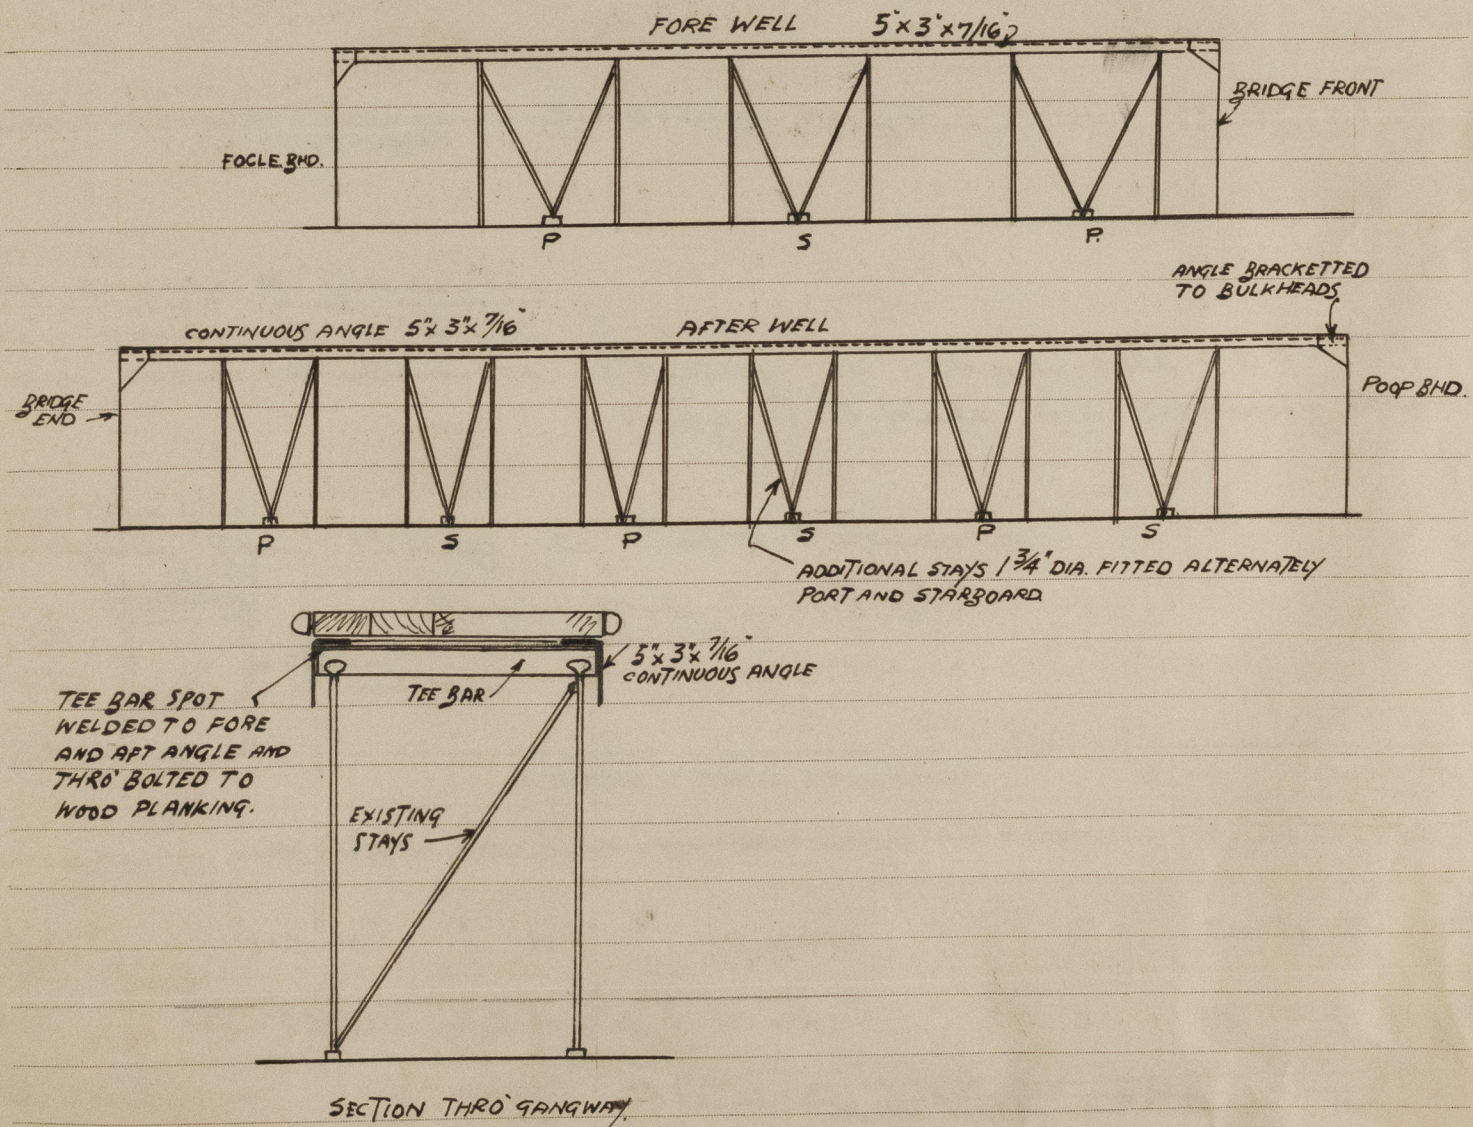 FORE WELL 5"x 3"x 7/16"
BRIDGE FRONT
FOCLE.BHD.
P S P.
ANGLE BRACKETTED
TO BULKHEADS
CONTINUOUS ANGLE 5"x 3"x 7/16" AFTER WELL
BRIDGE
END
POOP BHD.
P S P S P S
ADDITIONAL STAYS 1 3/4" DIA. FITTED ALTERNATELY
PORT AND STARBOARD
5"x 3"x 7/16"
CONTINUOUS ANGLE
TEE BAR
TEE BAR SPOT
WELDED TO FORE
AND AFT ANGLE AND
THRO' BOLTED TO
WOOD PLANKING.
EXISTING
STAYS
SECTION THRO' GANGWAY.